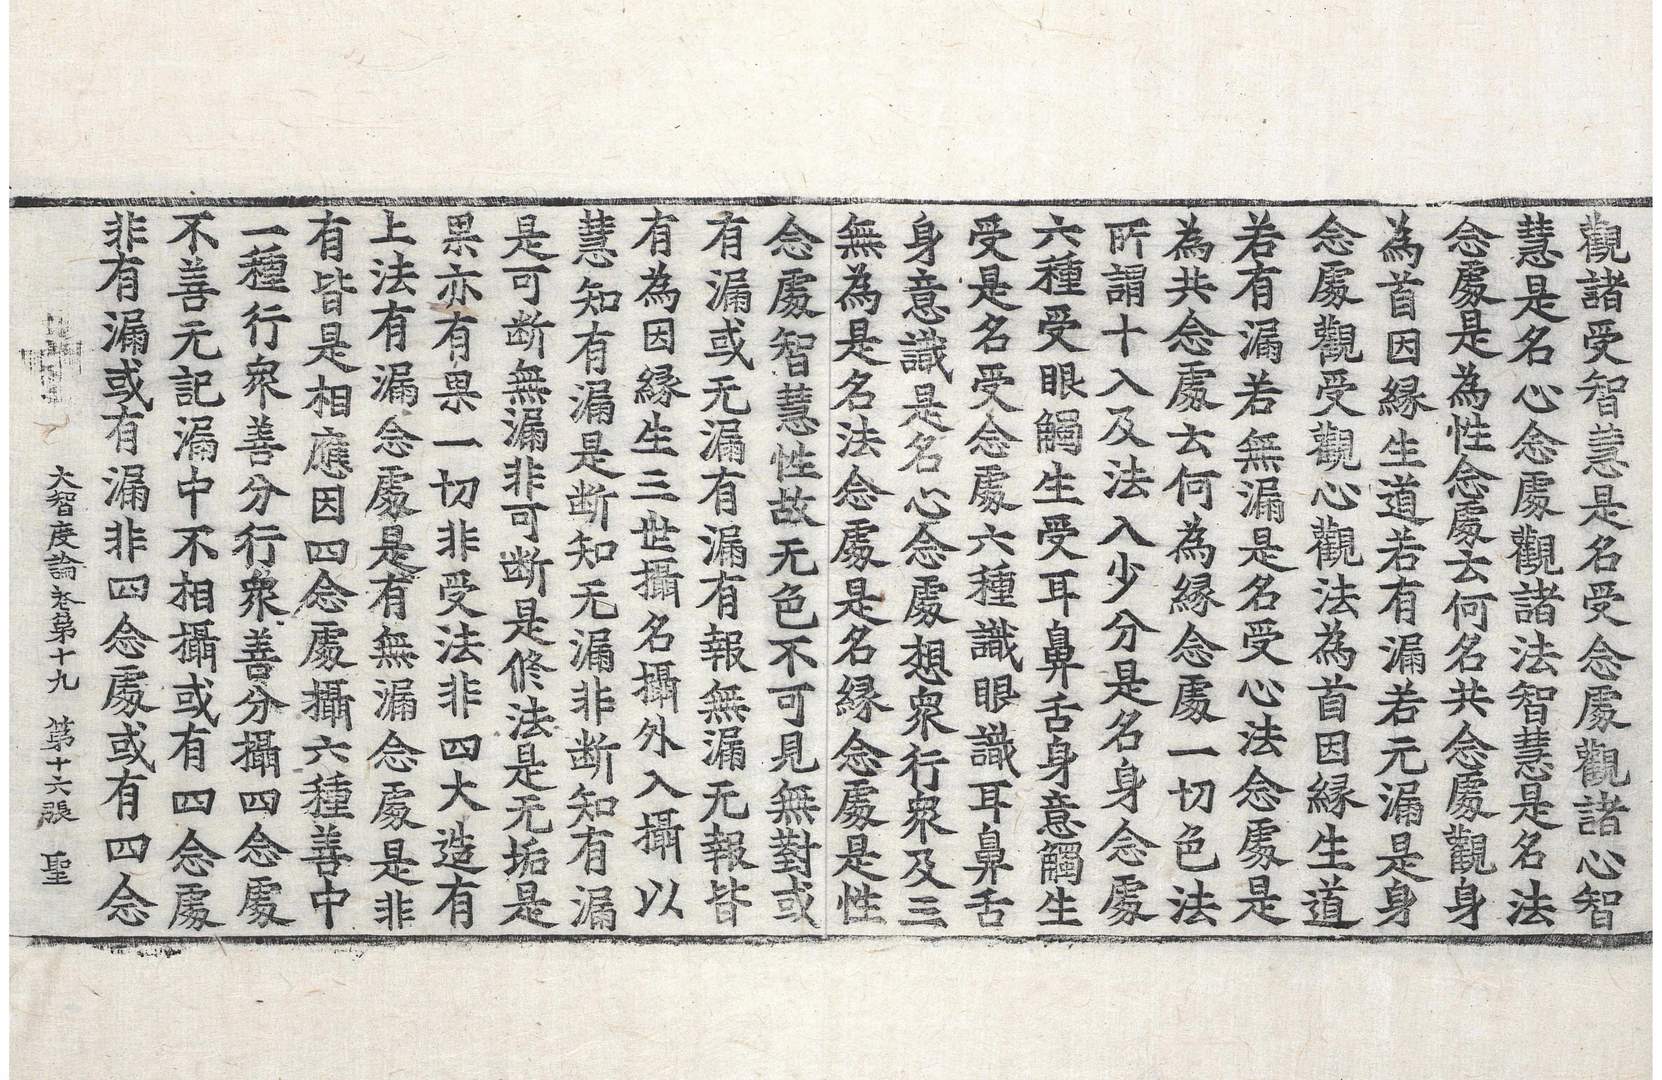 觀諸受智慧是名受念處觀諸心智
慧是名心念處觀諸法智慧是名法
念處是為性念處云何名共念處觀身
為首因緣生道若有漏若无漏是身
念處觀受觀心觀法為首因緣生道
若有漏若無漏是名受心法念處是
為共念處云何為緣念處一切色法
所謂十入及法入少分是名身念處
六種受眼觸生受耳鼻舌身意觸生
受是名受念處六種識眼識耳鼻舌
身意識是名心念處想衆行衆及三
無為是名法念處是名緣念處是性
念處智慧性故无色不可見無對或
有漏或无漏有漏有報無漏无報皆
有為因緣生三世攝名攝外入攝以
慧知有漏是断知无漏非断知有漏
是可断無漏非可断是修法是无垢是
果亦有果一切非受法非四大造有
上法有漏念處是有無漏念處是非
有皆是相應因四念處攝六種善中
一種行衆善分行衆善分攝四念處
不善无記漏中不相攝或有四念處
非有漏或有漏非四念處或有四念
大智度論卷第十九 第十六張 聖